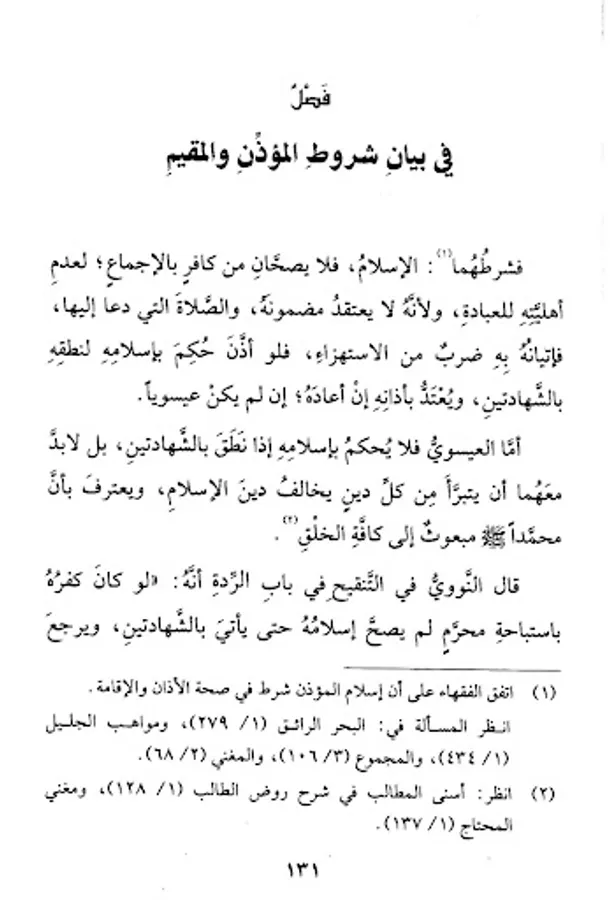 فَصْلٌ
في بيانِ شروطِ المؤذِّنِ والمقيمِ
فشرطُهُما(١): الإسلامُ، فلا يصحَّانِ من كافرٍ بالإجماعِ؛ لعدمِ
أهليَّتِهِ للعبادةِ، ولأنَّهُ لا يعتقدُ مضمونَهُ، والصَّلاةَ التي دعا إليها،
فإتيانُهُ بِهِ ضربٌ من الاستهزاءِ، فلو أذَّنَ حُكِمَ بإسلامِهِ لنطقِهِ
بالشَّهادتينِ، ويُعْتَدُّ بأذانِهِ إنْ أعادَهُ؛ إن لم يكنْ عيسوياً.
أمَّا العيسويُّ فلا يُحكمُ بإسلامِهِ إذا نَطَقَ بالشَّهادتينِ، بل لابدَّ
معَهُما أن يتبرَّأَ مِن كلِّ دينٍ يخالفُ دينَ الإسلامِ، ويعترفَ بأنَّ
محمَّداً ﷺ مبعوثٌ إلى كافَّةِ الخلْقِ(٢).
قال النَّوويُّ في التَّنقيحِ في بابِ الرِّدةِ أنَّهُ: «لو كانَ كفرُهُ
باستباحةِ محرَّمٍ لم يصحَّ إسلامُهُ حتى يأتيَ بالشَّهادتينِ، ويرجعَ
(١) اتفق الفقهاء على أن إسلام المؤذن شرط في صحة الأذان والإقامة.
انظر المسألة في: البحر الرائق (١/ ٢٧٩)، ومواهب الجليل
(١/ ٤٣٤)، والمجموع (٣/ ١٠٦)، والمغني (٢/ ٦٨).
(٢) انظر: أسنى المطالب في شرح روض الطالب (١/ ١٢٨)، ومغني
المحتاج (١/ ١٣٧).
١٣١